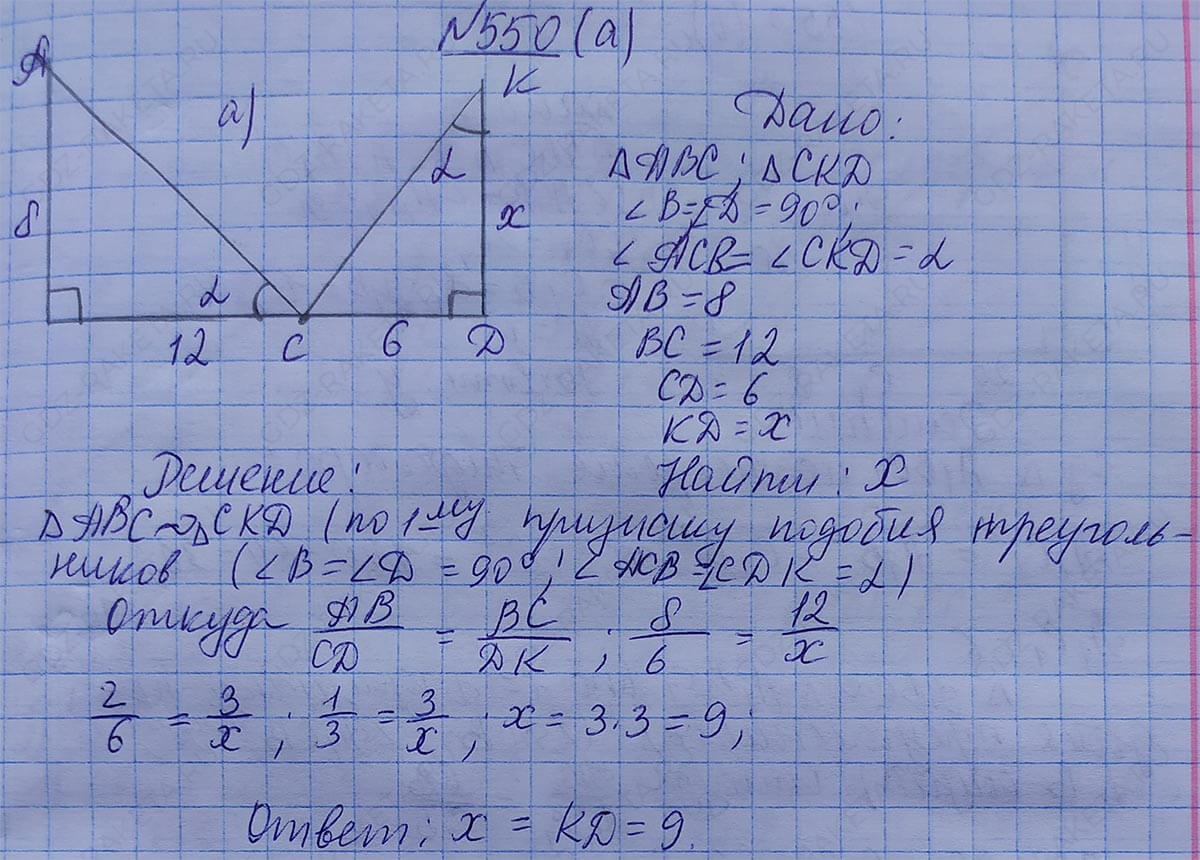 N550 (а)
A
K
а)
α
8
x
α
12
C
6
D
Дано:
Δ ABC; Δ CKD
∠ B = ∠D = 90°;
∠ ACB = ∠ CKD = α
AB = 8
BC = 12
CD = 6
KD = x
Найти: x
Решение:
Δ ABC ~ Δ CKD (по 1му признаку подобия треуголь-
ников (∠B = ∠D = 90°; ∠ ACB = ∠CDK = α)
Откуда AB/CD = BC/DK ; 8/6 = 12/x
2/6 = 3/x ; 1/3 = 3/x ; x = 3·3 = 9;
Ответ: x = KD = 9.